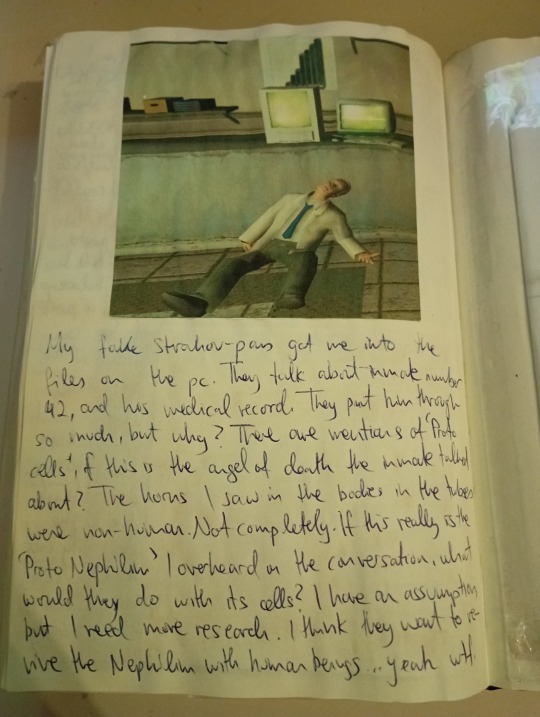 My fake Strahov-pass got me into the
files on the pc. They talk about inmate number
42, and his medical record. They put him through
so much, but why? There are mentions of 'Proto
cells', if this is the angel of death the inmate talked
about? The horns I saw in the bodies in the tubes
were non-human. Not completely. If this really is the
'Proto Nephilim' I overheard in the conversation, what
would they do with its cells? I have an assumption
but I need more research. I think they want to re-
vive the Nephilim with human beings... yeah wtf